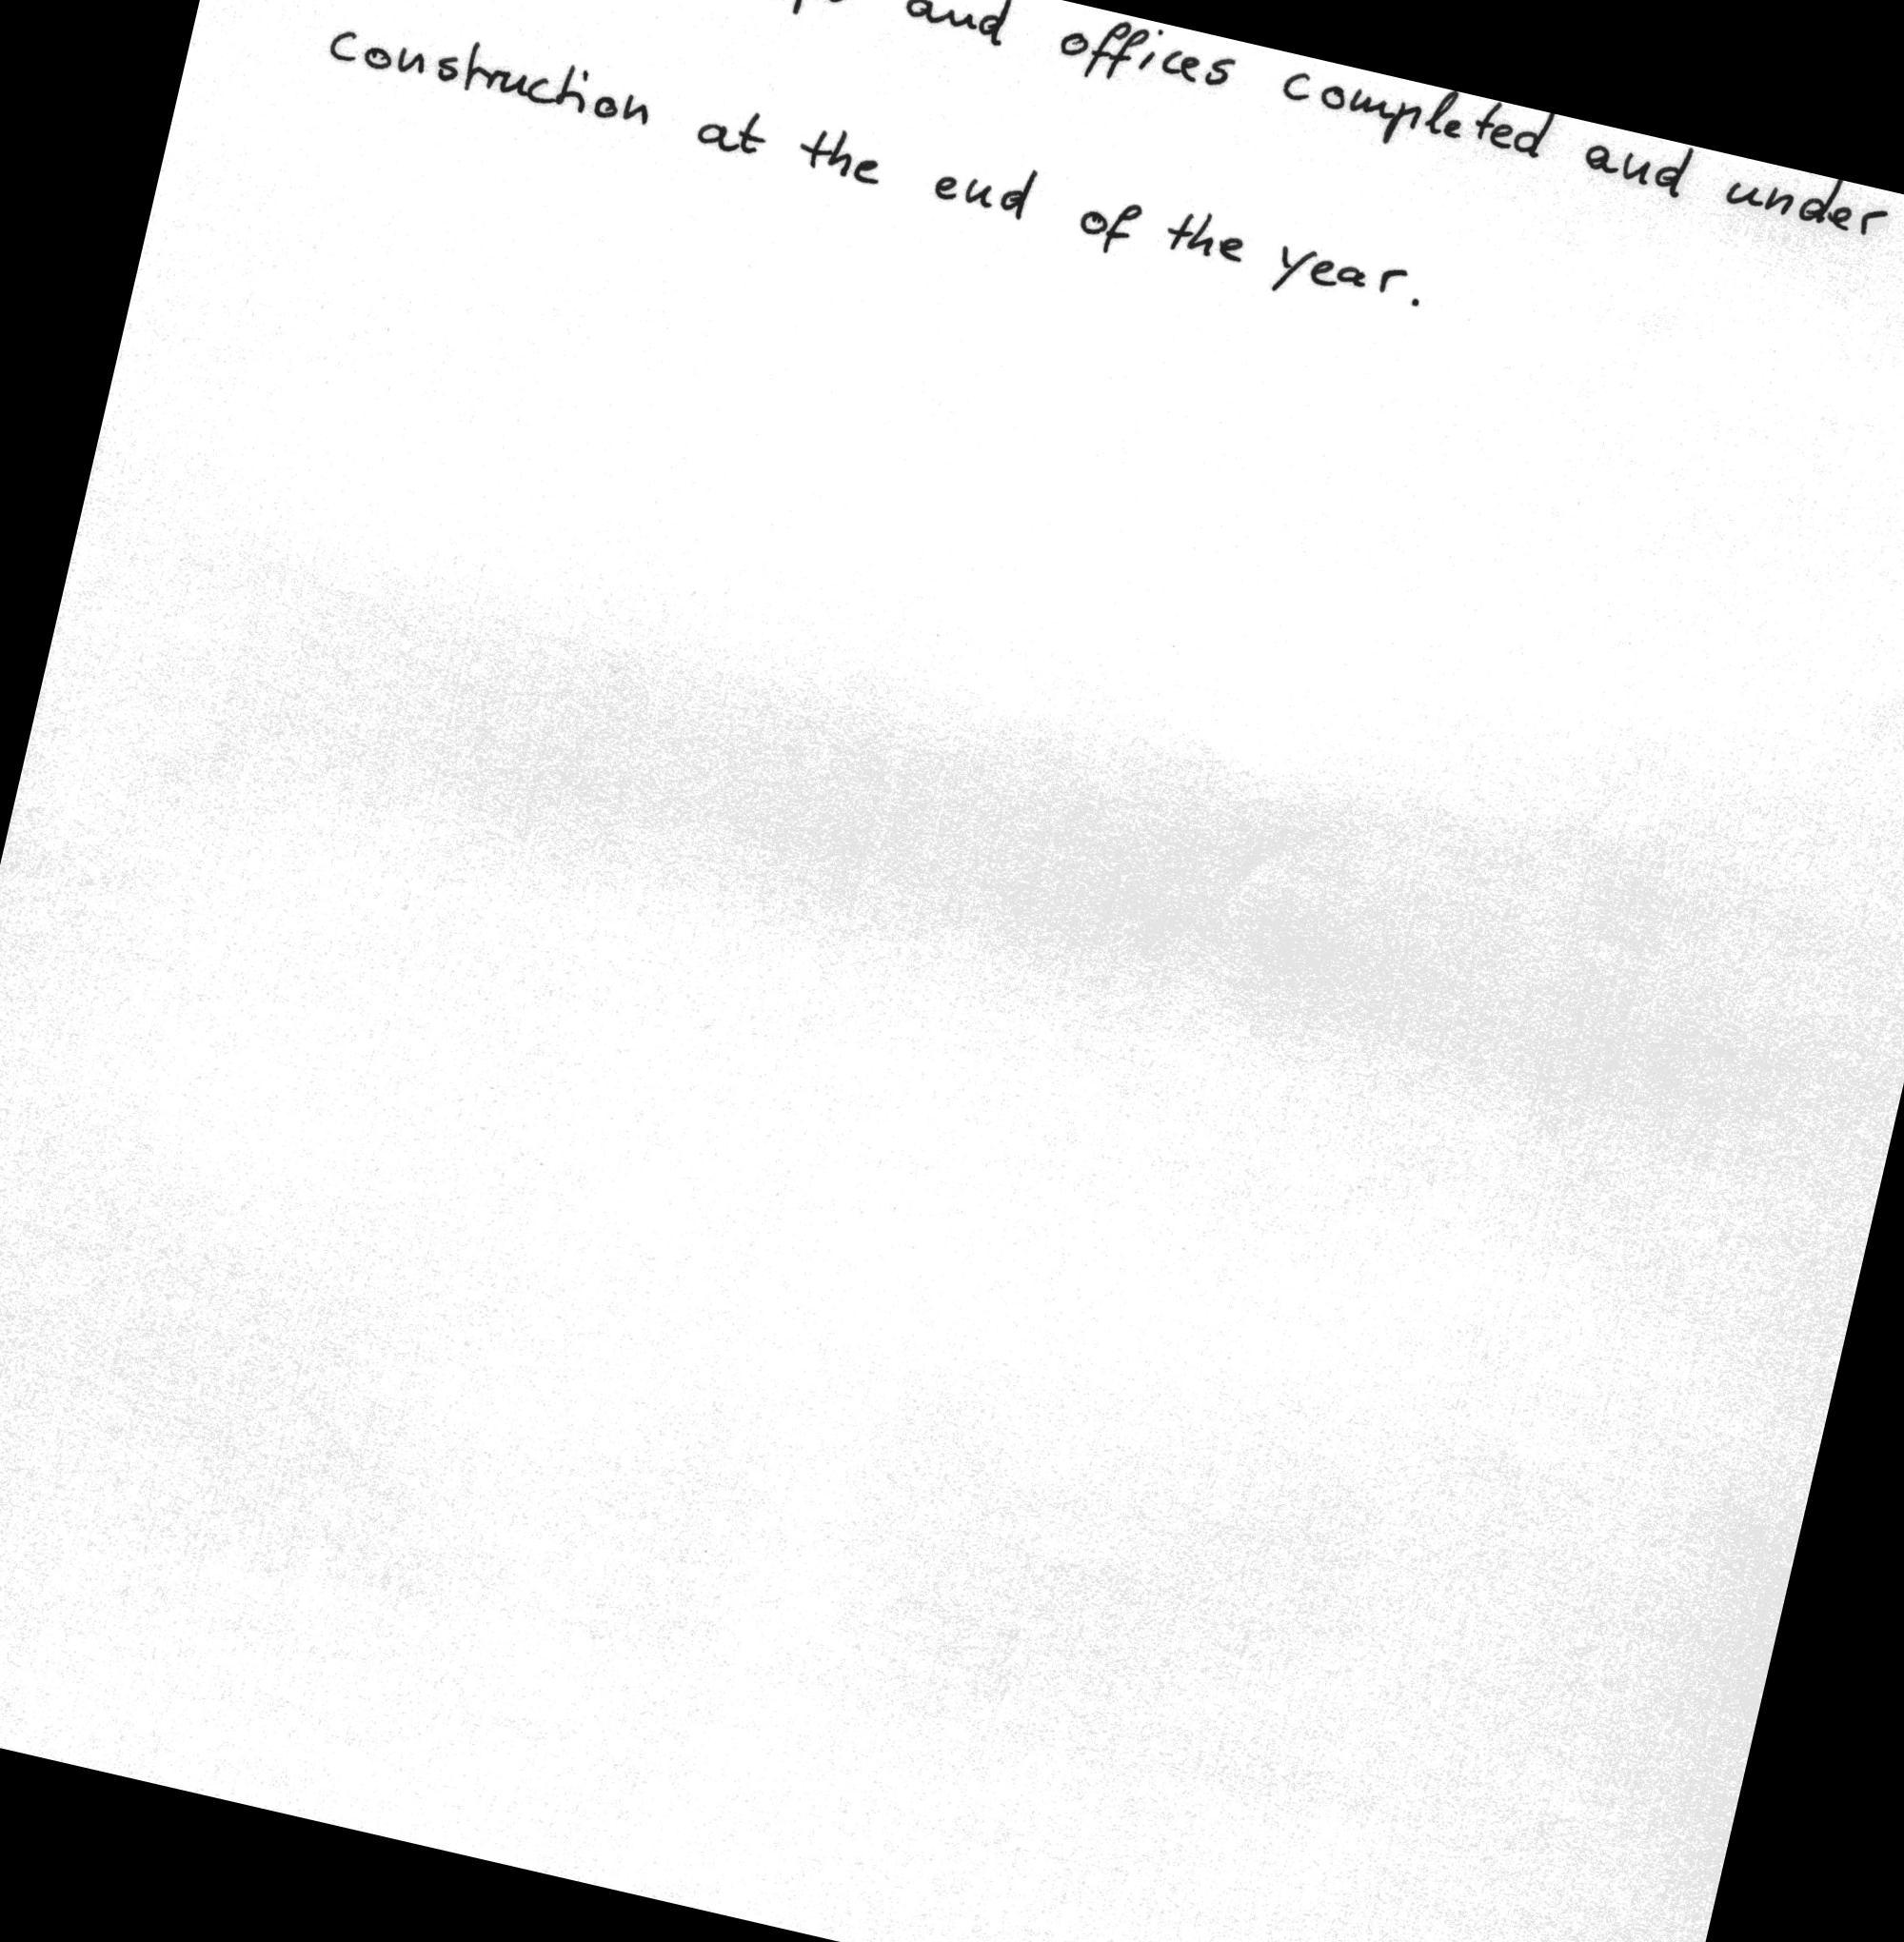 and offices completed and under
construction at the end of the year.